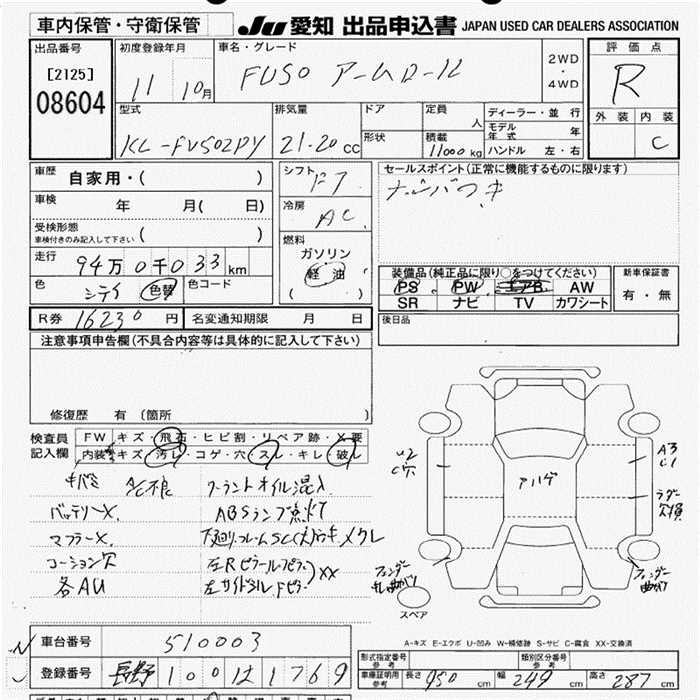 車内保管・守衛保管 JU 愛知 出品申込書 JAPAN USED CAR DEALERS ASSOCIATION
出品番号 初度登録年月 車名・グレード 評価点
[2125] 11 10月 FUSO アームロール 2WD・4WD R
08604 型式 排気量 ドア 定員 人 ディーラー・並行 外装 内装
KL-FV502PY 21.20 cc 形状 積載 11000 kg モデル年式 年 C
ハンドル 左・右
車歴 自家用・( ) シフト F7 セールスポイント(正常に機能するものに限ります)
車検 年 月( 日) 冷房 AC
受検形態 車検付きのみ記入して下さい ( ) 燃料
走行 94万0千033km ガソリン 装備品(純正品に限り○をつけてください) 新車保証書
軽油 PS PW エアB AW 有・無
色 シテイ 色替 色コード ( ) SR ナビ TV カワシート
R券 16230円 名変通知期限 月 日 後日品
注意事項申告欄(不具合内容等は具体的に記入して下さい)
修復歴 有 (箇所 )
検査員 FW キズ・飛石・ヒビ割・リペア跡・X要
記入欄 内装 キズ・汚レ・コゲ・穴・スレ・キレ・破レ
キバミ A/C不良 クーラントオイル混入
バッテリーX. ABSランプ点灯
マフラーX.
コーション欠
各AU
U2
C穴
アハゲ
A3
C1
ラダー
欠損
フェンダー
フェンダー
曲がり
スペア
A-キズ E-エクボ U-凹み W-補修跡 S-サビ C-腐食 XX-交換済
車台番号 510003
登録番号 長野 100 は 1769
型式指定番号 参考 類別区分番号 参考
車庫証明用 参考 長さ 950 cm 幅 249 cm 高さ 287 cm